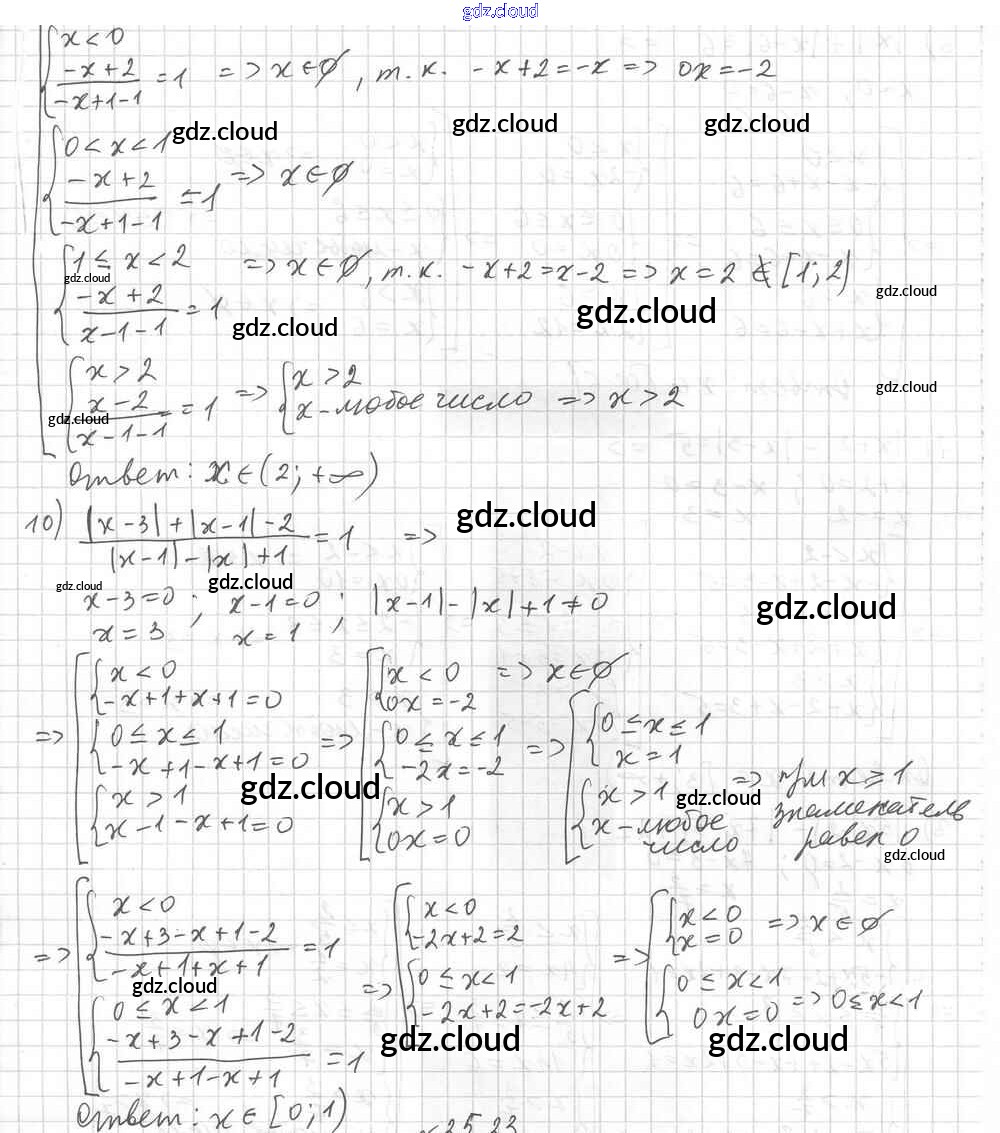 gdz.cloud
x < 0
(-x+2)/(-x+1-1) = 1 => x ∈ ∅, т.к. -x+2=-x => 0x=-2
gdz.cloud gdz.cloud gdz.cloud
0 < x < 1
(-x+2)/(-x+1-1) = 1 => x ∈ ∅
1 ≤ x < 2 => x ∈ ∅, т.к. -x+2=x-2 => x=2 ∉ [1;2)
gdz.cloud gdz.cloud
(-x+2)/(x-1-1) = 1
gdz.cloud gdz.cloud
x > 2
(x-2)/(x-1-1) = 1 => { x > 2
x-любое число => x > 2
gdz.cloud gdz.cloud
Ответ: x ∈ (2; +∞)
10) (|x-3|+|x-1|-2)/(|x-1|-|x|+1) = 1 =>
gdz.cloud
gdz.cloud gdz.cloud
x-3=0 ; x-1=0 ; |x-1|-|x|+1≠0
x=3 x=1
gdz.cloud
=> [ { x < 0
-x+1+x+1=0
{ 0 ≤ x ≤ 1
-x+1-x+1=0
{ x > 1
x-1-x+1=0
=> [ { x < 0 => x ∈ ∅
0x=-2
{ 0 ≤ x ≤ 1
-2x=-2
{ x > 1
0x=0
=> [ { 0 ≤ x ≤ 1
x=1
{ x > 1
x-любое
число
=> при x ≥ 1
знаменатель
равен 0
gdz.cloud gdz.cloud gdz.cloud
=> [ { x < 0
(-x+3-x+1-2)/(-x+1+x+1) = 1
{ 0 ≤ x < 1
(-x+3-x+1-2)/(-x+1-x+1) = 1
=> [ { x < 0
-2x+2=2
{ 0 ≤ x < 1
-2x+2=-2x+2
=> [ { x < 0
x=0 => x ∈ ∅
{ 0 ≤ x < 1
0x=0 => 0 ≤ x < 1
gdz.cloud gdz.cloud gdz.cloud
Ответ: x ∈ [0; 1)